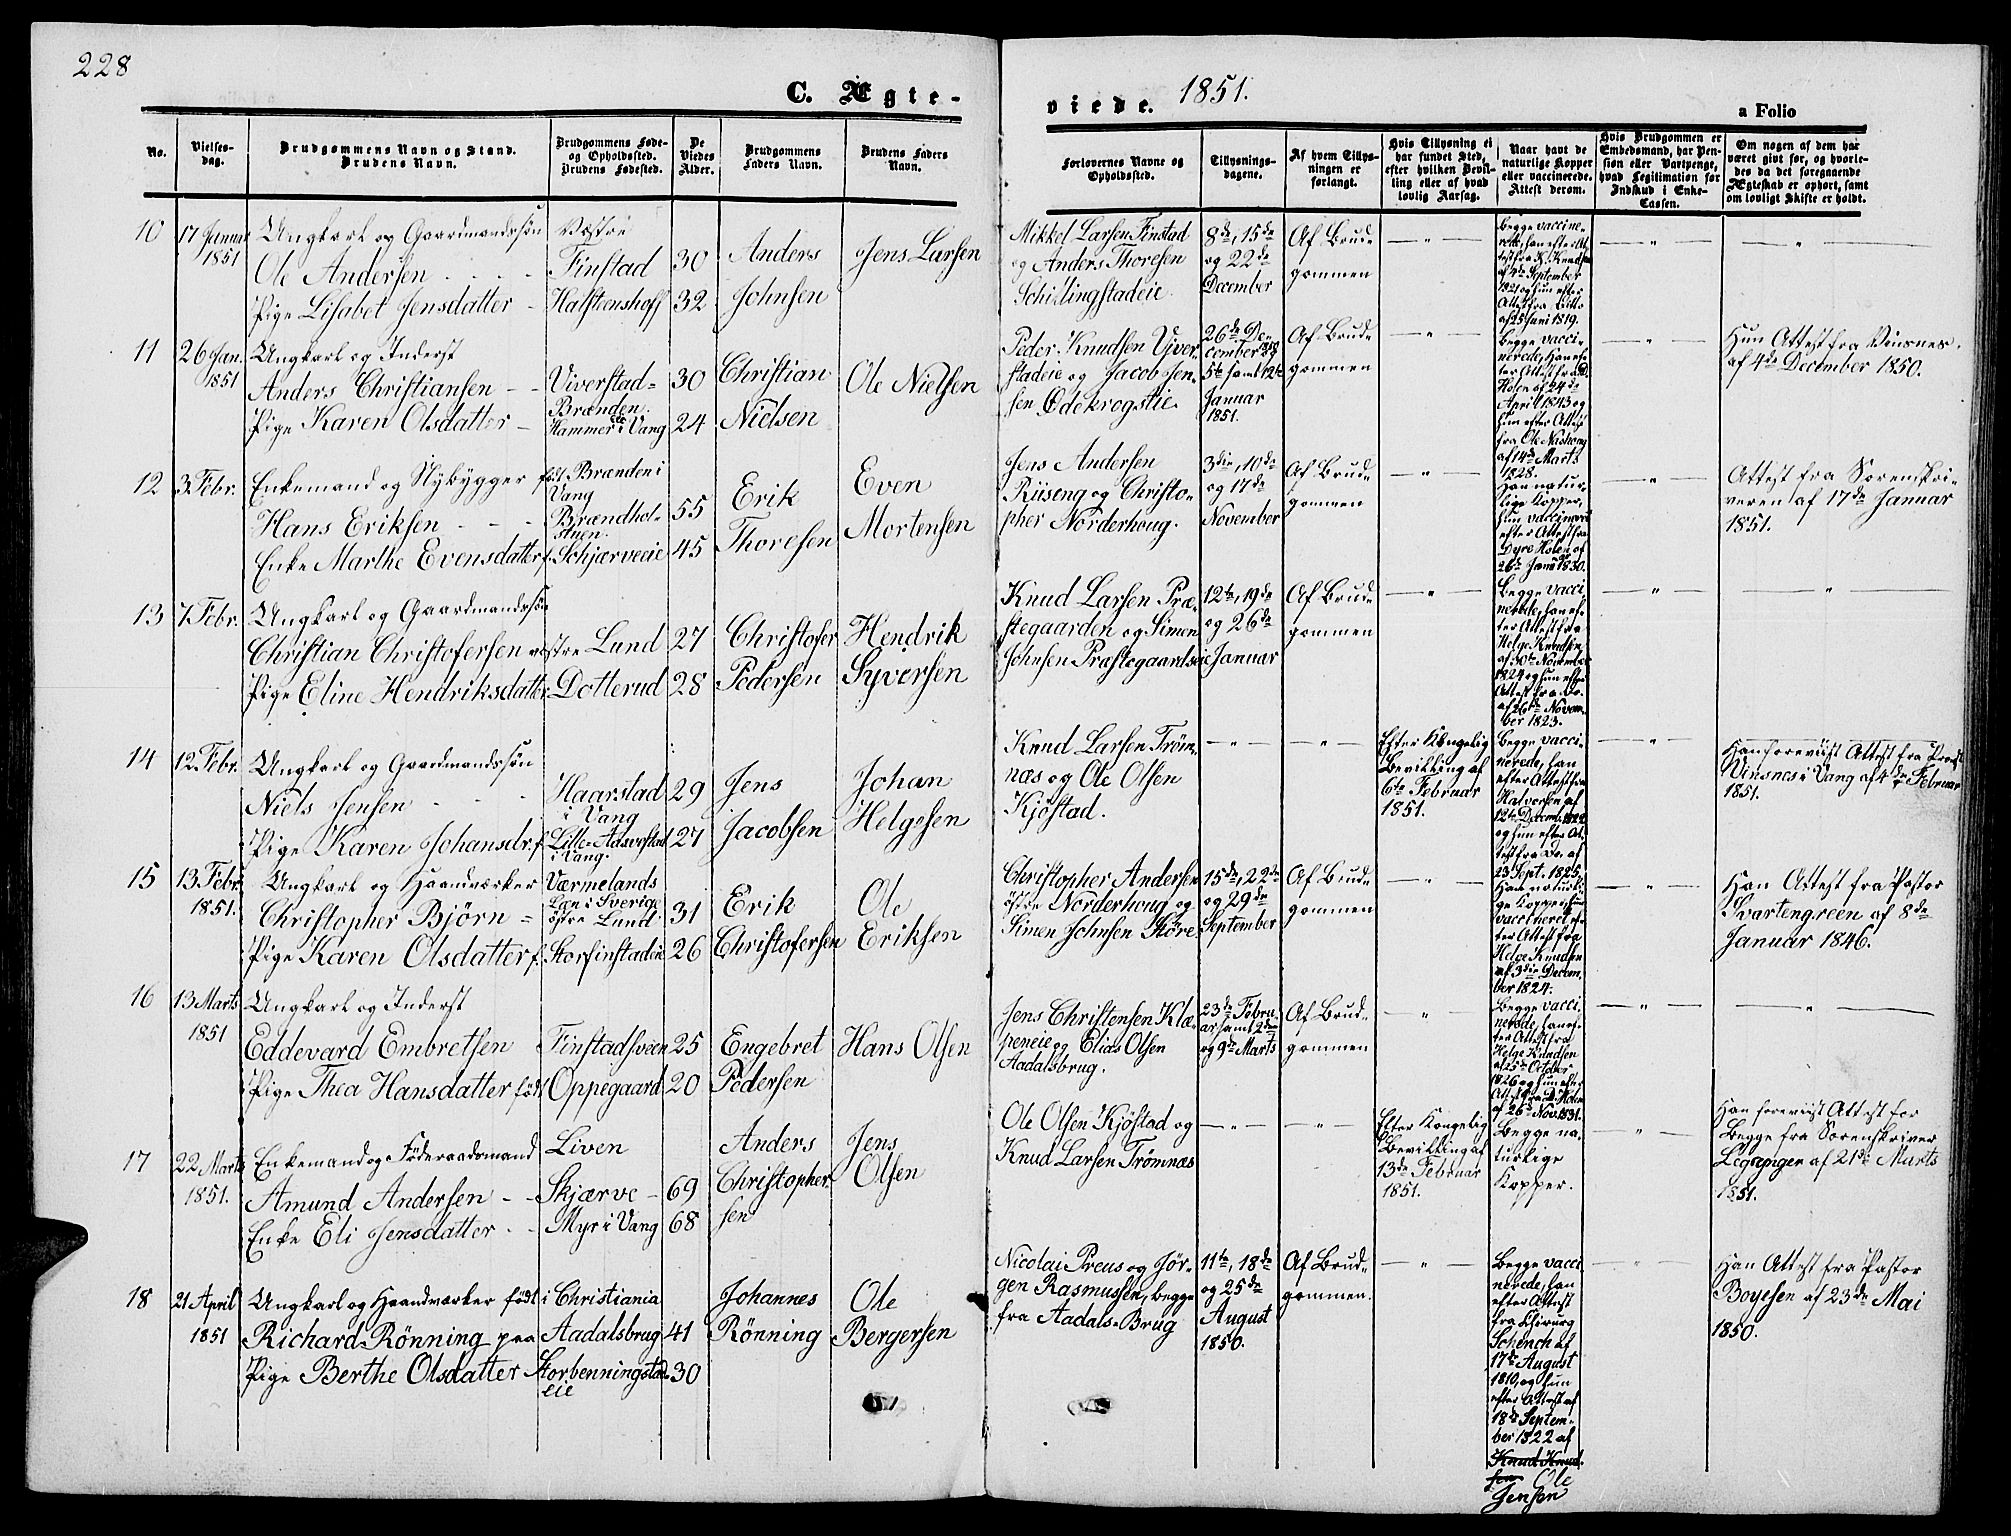 228
C. Ægte-
viede. 1851.
a Folio
No.
Vielses-
dag.
Brudgommens Navn og Stand.
Brudens Navn.
Brudgommens Føde-
og Opholdssted.
Brudens Fødested.
De
Viedes
Alder.
Brudgommens
Faders Navn.
Brudens Faders
Navn.
Forlovernes Navne og
Opholdssted.
Tillysnings-
dagene.
Af hvem Tillys-
ningen er
forlangt.
Hvis Tillysning ei
har fundet Sted,
efter hvilken Bevil-
ling eller af hvad
lovlig Aarsag.
Naar havt de
naturlige Kopper
eller vaccinerede.
Attest derom.
Hvis Brudgommen er
Embedsmand, har Pen-
sion eller Vartpenge,
hvad Legitimation for
Indskud i Enke-
Cassen.
Om nogen af dem har
været givt før, og hvorle-
des da det foregaaende
Ægteskab er ophørt, samt
om lovligt Skifte er holdt.
10
17 Januar
1851
Ungkarl og Gaardmandssøn
Ole Andersen
Pige Lisabet Jensdatter
Vestre
Finstad
Halsteenshoff
30
32
Anders
Johnsen
Jens Larsen
Mikkel Larsen Finstad
og Anders Thoresen
Schillingstadeie
8de, 15de
og 22de
December
Af Brud-
gommen
— " —
Begge vaccine-
rede, han efter At-
test fra K. Knudsen
af 4de September
1821 og hun efter
Attest fra Ditto
af 25 Juni 1819.
— " —
— " —
11
26 Jan.
1851
Ungkarl og Inderst
Anders Christiansen
Pige Karen Olsdatter
Viverstad-
Brænden.
Hammer i Vang
30
24
Christian
Nielsen
Ole Nielsen
Peder Knudsen Vjver-
stadeie og Jacob Jen-
sen Ødekrogstie
26de De-
cember 1850
5te samt 12te
Januar
1851.
Af Brud-
gommen
— " —
Begge vacci-
nerede, Han ef-
ter Attest fra D.
Holen af 24de
April 1843 og
hun efter Attest
fra Ole Nashoug
af 14de Marts
1828.
— " —
Hun Attest fra Vinsnes.
af 4de December 1850.
12
3. Febr.
Enkemand og Nybygger
Hans Eriksen
Enke Marthe Evensdatter f.
født Brænden i
Vang
Brændhol-
stuen.
Schjærveeie
55
45
Erik
Thoresen
Even
Mortensen
Jens Andersen
Riiseng og Christo-
pher Norderhoug.
3die, 10de
og 17de
November
Af Brud-
gommen
— " —
Han natur-
lige Kopper,
hun vaccineret
efter Attest fra
Dyre Holen af
26de Juni 1830.
— " —
Attest fra Sorenskri-
veren af 17de Januar
1851.
13
7 Febr.
Ungkarl og Gaardmandssøn
Christian Christofersen
Pige Eline Hendriksdatter
vestre Lund
Dotterud
27
28
Christofer
Pedersen
Hendrik
Syversen
Knud Larsen Præ-
stegaarden og Simen
Johnsen Præstegaardseie
12te, 19de
og 26de
Januar
Af Brud-
gommen
— " —
Begge vacci-
nerede, han ef-
ter Attest fra
Helge Knudsen
af 30te November
1824 og hun efter
Attest fra do.
af 26de Novem-
ber 1823.
— " —
— " —
14
12. Febr.
Ungkarl og Gaardmandssøn
Niels Jensen
Pige Karen Johansdr. f.
Haarstad
i Vang
Lille-Aasvestad
i Vang.
29
27
Jens
Jacobsen
Johan
Helgesen
Knud Larsen Trøm-
næs og Ole Olsen
Kjøstad.
— " —
— " —
Efter Kongelig
Bevilling af
6te Februar
1851.
Begge vacci-
nerede, han
efter Attest fra
Halvorsen af
12te Decemb. 1822
og hun efter At-
test fra Do. af
23 Sept. 1825.
— " —
Han foreviist Attest fra Provst
Vinsnes i Vang af 4de Februar
1851.
15
13. Febr.
1851.
Ungkarl og Haandværker
Christopher Bjørn
Pige Karen Olsdatter f.
Værmelands
Læn i Sverige
østre Lund
Storfinstadeie
31
26
Erik
Christofersen
Ole
Eriksen
Christopher Andersen
østre Norderhoug og
Simen Johnsen Støre
15de, 22de
og 29de
September
Af Brud-
gommen
— " —
Han naturli-
ge Kopper, hun
vaccineret ef-
ter Attest fra
Helge Knudsen
af 3die Decem-
ber 1824.
— " —
Han Attest fra Pastor
Svartengreen af 8de
Januar 1846.
16
13 Marts
1851
Ungkarl og Inderst
Eddevard Embretsen
Pige Thea Hansdatter født
Finstadsveen
Oppegaard
25
20
Engebret
Pedersen
Hans Olsen
Jens Christensen Klæ-
peneie og Elias Olsen
Aadalsbrug.
23de Febru-
ar samt 2den
og 9de Marts
Af Brud-
gommen
— " —
Begge vacci-
nerede, han ef-
ter Attest fra
Helge Knudsen
af 25de October
1826 og hun efter
Attest fra D. Holen
af 26de Nov. 1831.
— " —
— " —
17
22 Marts
1851.
Enkemand og Føderaadsmand
Amund Andersen
Enke Eli Jensdatter
Liven
Skjærve
Myr i Vang
69
68
Anders
Christopher-
sen
Jens
Olsen
Ole Olsen Kjøstad og
Knud Larsen Trømnæs
— " —
— " —
Efter Kongelig
Bevilling af
13de Februar
1851.
Begge na-
turlige
Kopper.
— " —
Han foreviist Attest for
Begge fra Sorenskriver
Leganger af 21de Marts
1851.
18
21 April
1851
Ungkarl og Haandværker født
Richard Rönning paa
Pige Berthe Olsdatter
i Christiania
Aadalsbrug
Storbenningstad-
eie
41
30
Johannes
Rönning
Ole
Bergersen
Nicolai Preus og Jør-
gen Rasmussen, begge
fra Aadals-Brug
11te, 18de
og 25de
August
1850.
Af Brud-
gommen.
— " —
Begge vacci-
nerede, han
efter Attest
fra Chirurg
Schench af
17de August
1810, og hun
efter Attest af
18de Septem-
ber 1822 af
Knud Knud-
sen Ole
Jensen
— " —
Han Attest fra Pastor
Boyesen af 23de Mai
1850.